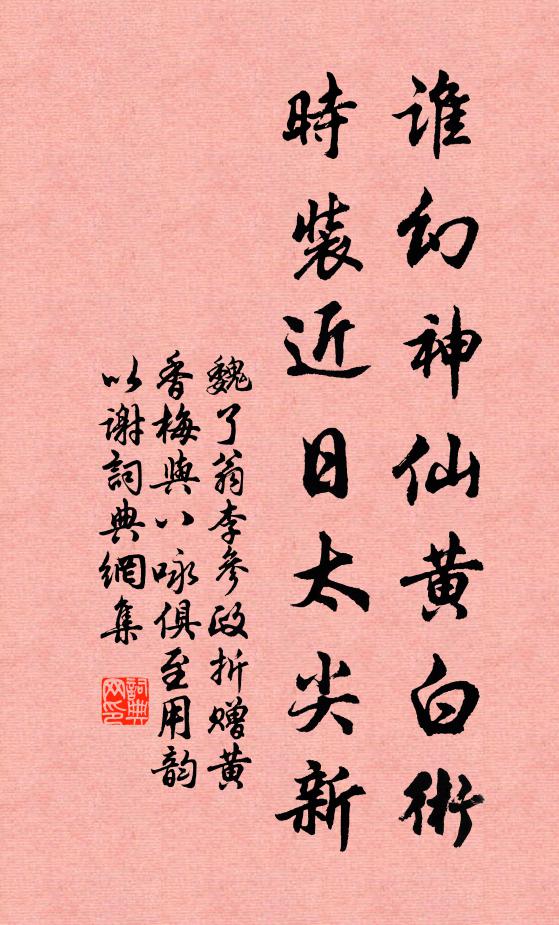 誰幻神仙黄白術
時裝近日太尖新
魏了翁李參政折贈黄
香梅與八咏俱至用韵
以謝詞典網集
詞典
网印